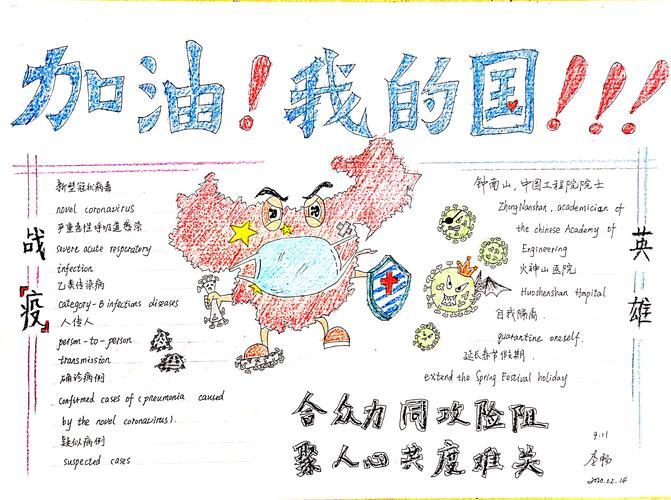 加油！我的国！！！
战疫
新型冠状病毒
novel coronavirus
严重急性呼吸道感染
severe acute respiratory
infection
乙类传染病
category-B infections diseases
人传人
person-to-person
transmission
确诊病例
confirmed cases of (pneumonia caused
by the novel coronavirus).
疑似病例
suspected cases
钟南山，中国工程院院士
Zhong Nanshan, academician of
the chinese Academy of
Engineering
火神山医院
Huoshenshan Hospital
自我隔离.
quarantine oneself.
延长春节假期.
extend the Spring Festival holiday
英雄
合众力同攻险阻
聚人心共度难关
9.11
李畅
2020.02.14